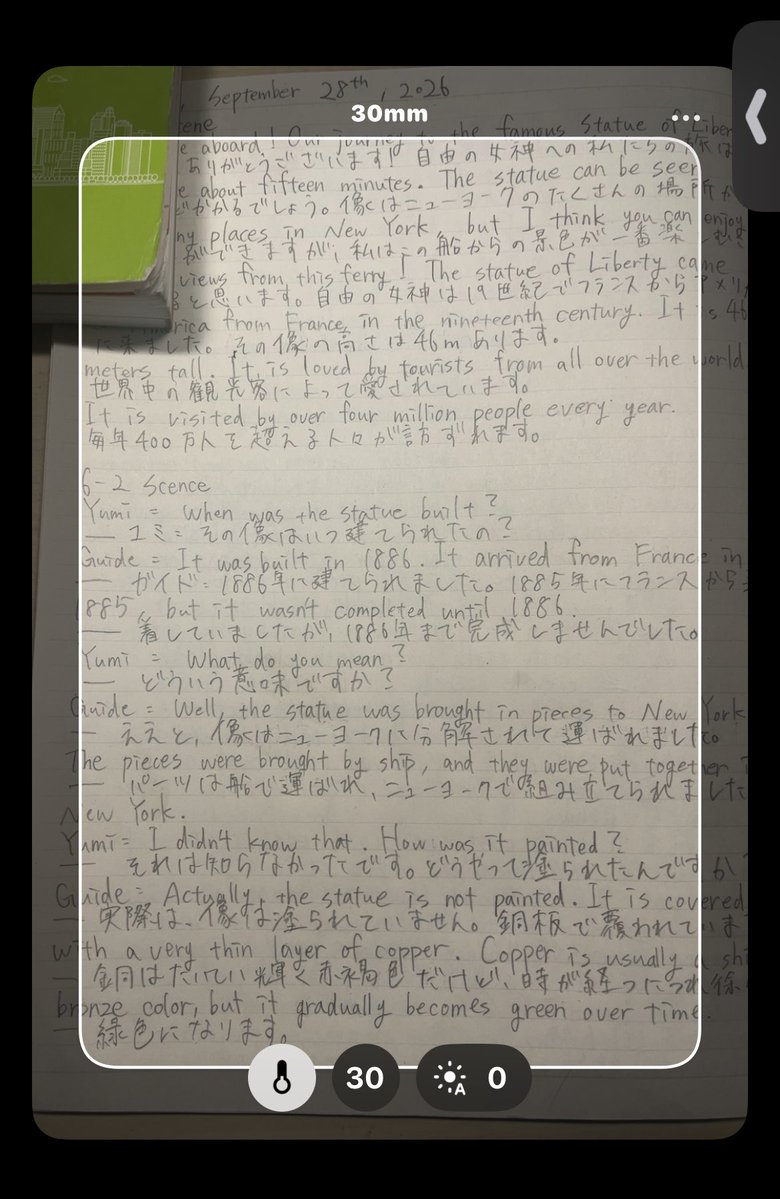 September 28th, 2026
30mm
...
ene
e aboard! Our journey to the famous Statue of Liber
ありがとうございます! 自由の女神への私たちの旅は
e about fifteen minutes. The statue can be seen
どかかるでしょう。像はニューヨークのたくさんの場所か
ny places in New York but I think you can enjoy
ができますが、私はこの船からの景色が一番楽しむ
views from this ferry! The statue of Liberty came
と思います。自由の女神は19世紀でフランスからアメリカ
rica from France in the nineteenth century. It is 46
に来ました。その像の高さは46mあります。
meters tall. It is loved by tourists from all over the world
世界中の観光客によって愛されています。
It is visited by over four million people every year.
毎年400万人を超える人々が訪ずれます。
6-2 Scence
Yumi = When was the statue built?
— ユミ: その像はいつ建てられたの?
Guide = It was built in 1886. It arrived from France in
— ガイド: 1886年に建てられました。1885年にフランスから
1885, but it wasn't completed until 1886.
— 着していましたが、1886年まで完成しませんでした。
Yumi = What do you mean?
— どういう意味ですか?
Guide = Well, the statue was brought in pieces to New York
— ええと、像はニューヨークに分解されて運ばれました。
The pieces were brought by ship, and they were put together
— パーツは船で運ばれ、ニューヨークで組み立てられました
New York.
Yumi = I didn't know that. How was it painted?
— それは知らなかったです。どうやって塗られたんですか?
Guide = Actually, the statue is not painted. It is covered
— 実際は、像は塗られていません。銅板で覆われていま
with a very thin layer of copper. Copper is usually a shi
— 銅はだいたい輝く赤褐色だけど、時が経つにつれ徐
bronze color, but it gradually becomes green over time.
— 緑色になります。
30
A 0